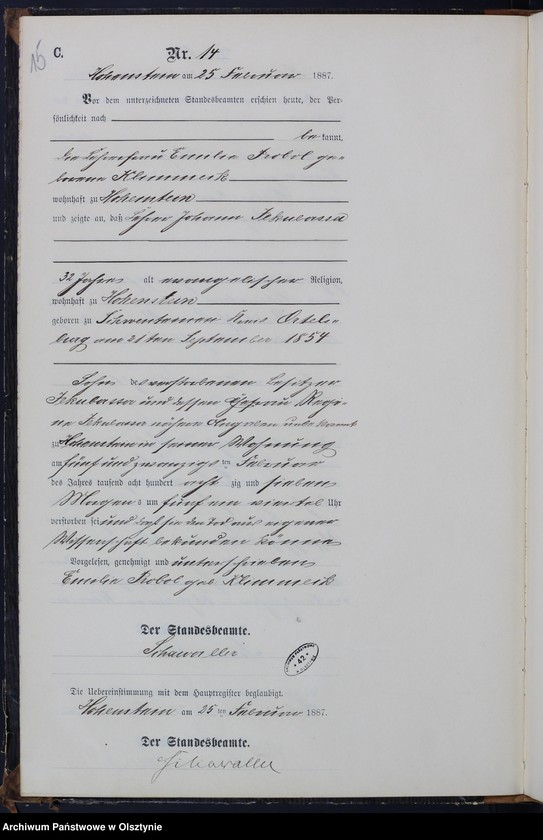 15
C.
Nr. 14
Hohenstein am 25 Februar 1887.
Vor dem unterzeichneten Standesbeamten erschien heute, der Per-
sönlichkeit nach
be kannt,
die Lehrerfrau Emilie Drobol ge-
borene Klimmeck
wohnhaft zu Hohenstein
und zeigte an, daß Lehrer Johann Jekubassa
32 Jahre alt evangelischer Religion,
wohnhaft zu Hohenstein
geboren zu Schwentainen Kreis Ortels-
burg am 21ten September 1854
Sohn des verstorbenen Besitzer
Jekubassa und dessen Ehefrau Regi-
ne Jekubassa nähere Angaben unbekannt
zu Hohenstein in seiner Wohnung
am fünf und zwanzigsten Februar
des Jahres tausend acht hundert acht zig und sieben
Morgens um fünf ein viertel Uhr
verstorben sei und daß sie den Tod aus eigener
Wissenschaft bekunden könne
Vorgelesen, genehmigt und unterschrieben
Emilie Drobol geb. Klimmeck
Der Standesbeamte.
Schawaller
42
Die Uebereinstimmung mit dem Hauptregister beglaubigt.
Hohenstein am 25 ten Februar 1887.
Der Standesbeamte.
Schawaller
Archiwum Państwowe w Olsztynie